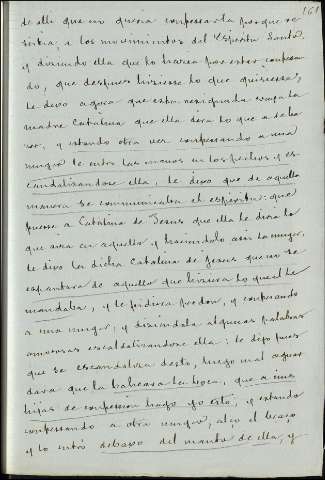 161
de alli que no queria confesarla porque re
sistia a los movimientos del Espiritu Santo,
y diciendo ella que lo hacia por estar confesan
do, que despues hiciesse lo que quisiesse,
le dixo agora que esta venga la
madre Catalina que ella dira lo que a de ha
cer, y estando otra vez confessando a una
muger le entró las manos en los pechos y es
candalizandose ella, le dixo que de aquella
manera se communicaba el espiritu: que
fuesse a Catalina de Jesus que ella le diria lo
que avia en aquello y haciendolo assi la muger,
le dixo la dicha Catalina de Jesus que no se
espantara de aquello que hiciera lo que el le
mandaba, y le pidiera perdon, y confesando
a una muger, y diciendola algunas palabras
amorosas escandalizandose ella: le dijo pues
que se escandaliza desto, luego mal aguar
dara que la bese en la boca, que a mis
hijas de confesion hago yo esto, y estando
confessando a otra muger, alço el braço
y lo entró debaxo del manto de ella, y